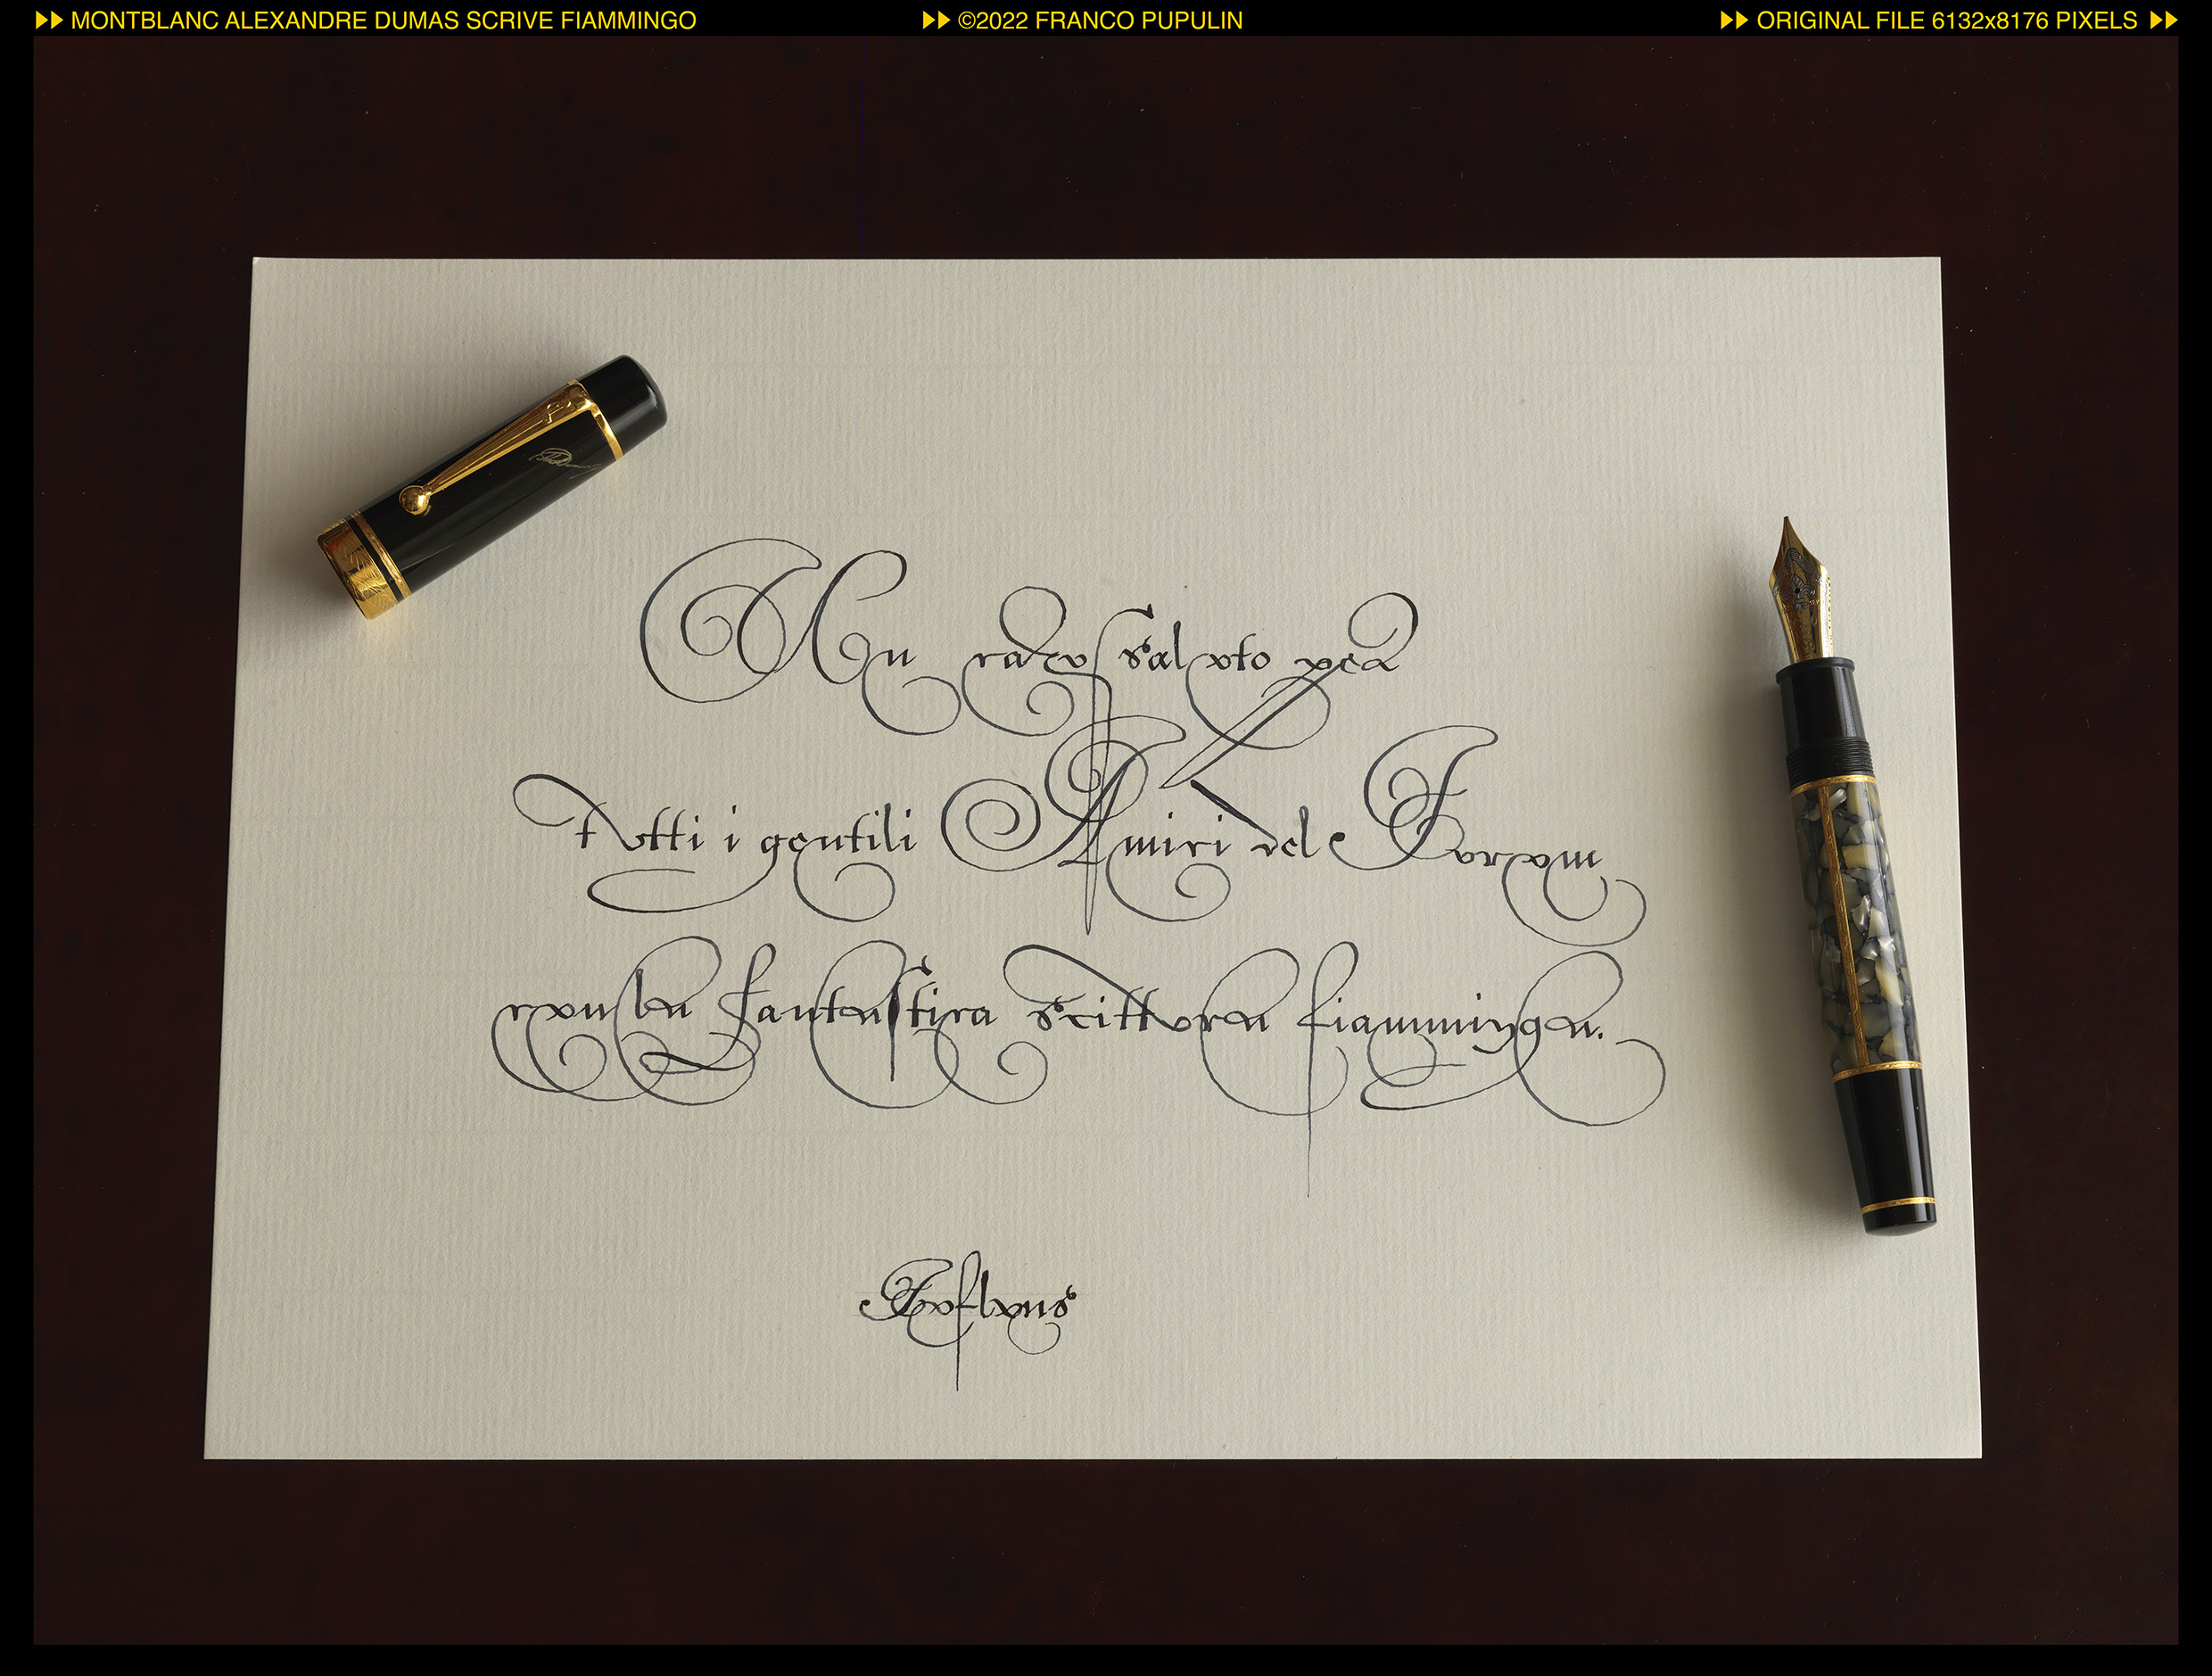 MONTBLANC ALEXANDRE DUMAS SCRIVE FIAMMINGO
©2022 FRANCO PUPULIN
ORIGINAL FILE 6132x8176 PIXELS
Un caro saluto per
tutti i gentili Amici del Forum
con la fantastica scrittura fiamminga.